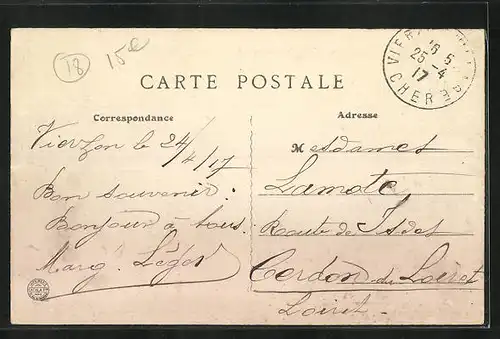 18
15e
VIERZON
16 5
25-4
17
CHER
CARTE POSTALE
Correspondance
Adresse
Vierzon le 24/4/17
Mesdames
Lamote
Bon souvenir.
Bonjour à tous.
Route de Isdes
Marg. Léger
Cerdon du Loiret
Loiret